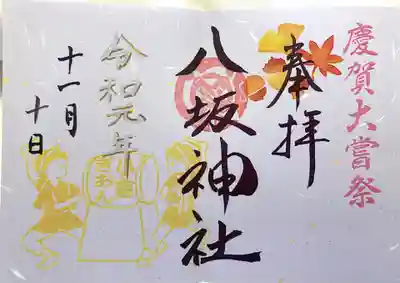 慶賀大嘗祭
奉拝
八坂神社
令和元年
十一月
十日